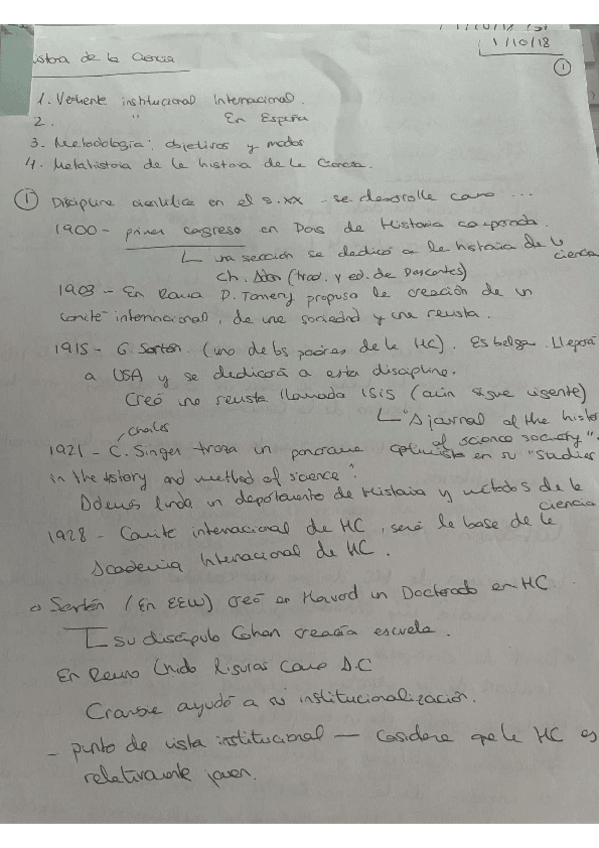 1/10/18
①
istoria de la Ciencia
1. Vertiente institucional Internacional.
2. " En España
3. Metodología: objetivos y modos
4. Metahistoria de la historia de la Ciencia.
① Disciplina científica en el s.XX - se desarrolla como ...
1900 - primer congreso en París de Historia comparada.
una sección se dedicó a la historia de la ciencia
Ch. Adan (trad. y ed. de Descartes)
1903 - En Roma P. Tannery propuso la creación de un
comité internacional, de una sociedad y una revista.
1915 - G. Sartón. (uno de los padres de la HC). Es belga. Llegará
a USA y se dedicará a esta disciplina.
Creó una revista llamada ISIS (aún sigue vigente)
"A journal of the history of science society".
Charles
1921 - C. Singer traza un panorama optimista en su "Studies
in the history and method of science".
Además funda un departamento de Historia y métodos de la ciencia
1928 - Comite internacional de HC, será la base de la
Academia Internacional de HC.
Sartón (En EEUU) creó en Harvard un Doctorado en HC.
su discípulo Cohan crearía escuela.
En Reino Unido figuras como A.C
Crombie ayudó a su institucionalización.
- punto de vista institucional — Considera que la HC es
relativamente joven.